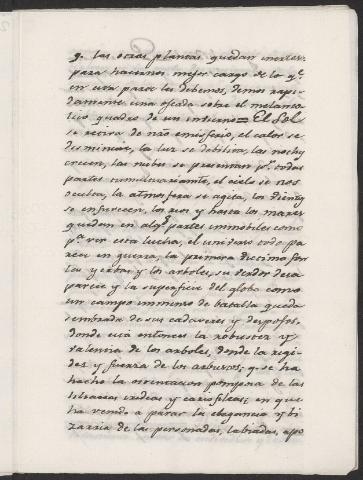 q. las otras plantas quedan inertes.
para hacernos mejor cargo de lo q.
en esta parte les debemos, demos rapi-
damente una ojeada sobre el melanco-
lico quadro de un invierno = El Sol
se retira de nro emisferio, el calor se
disminuie, la luz se debilita, las noches
crecen, las nubes se presentan p. todas
partes el cielo se nos
oculta, la atmosfera se agita, los
se enfurecen, los rios y hasta los mares
quedan en alg. partes immobiles como
p. ver esta lucha, el universo todo pa-
rece en guerra, la primera victima son
las yerbas y los arboles, su verdor desa-
parece y la superficie del globo como
un campo inmenso de batalla queda
sembrada de sus cadaveres y despojos.
donde está entonces la robustez y
valentia de los arboles, donde la rigi-
dez y fuerza de los arbustos; q. se ha
hecho la ostentacion pomposa de las
liliaceas y cariofileas; en que
ha venido a parar la elegancia y bi-
zarria de las personadas, labiadas, apo